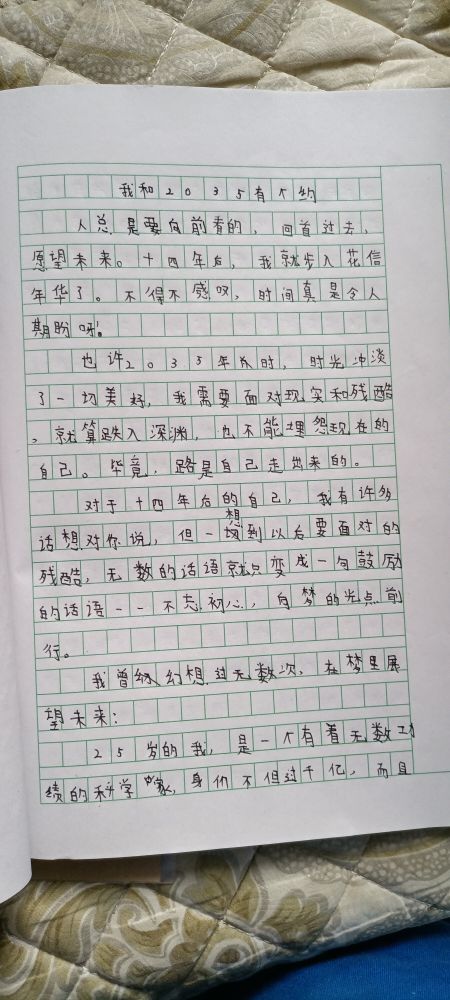 我和2035有个约
人总是要向前看的，回首过去，
愿望未来。十四年后，我就步入花信
年华了。不得不感叹，时间真是令人
期盼呀！
也许2035年以时，时光冲淡
了一切美好，我需要面对现实和残酷
，就算跌入深渊，也不能埋怨现在的
自己。毕竟，路是自己走出来的。
对于十四年后的自己，我有许多
话想对你说，但一想到以后要面对的
残酷，无数的话语就只变成一句鼓励
的话语--不忘初心，向梦的光点前
行。
我曾经幻想过无数次，在梦里展
望未来：
25岁的我，是一个有着无数功
绩的科学家，身价不但过千亿，而且